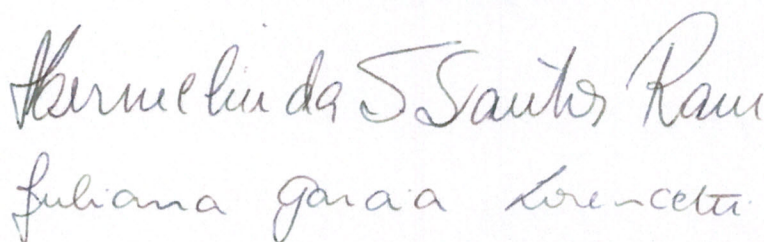 Hermelinda S Santos Ram
Juliana Garcia Lorencetti